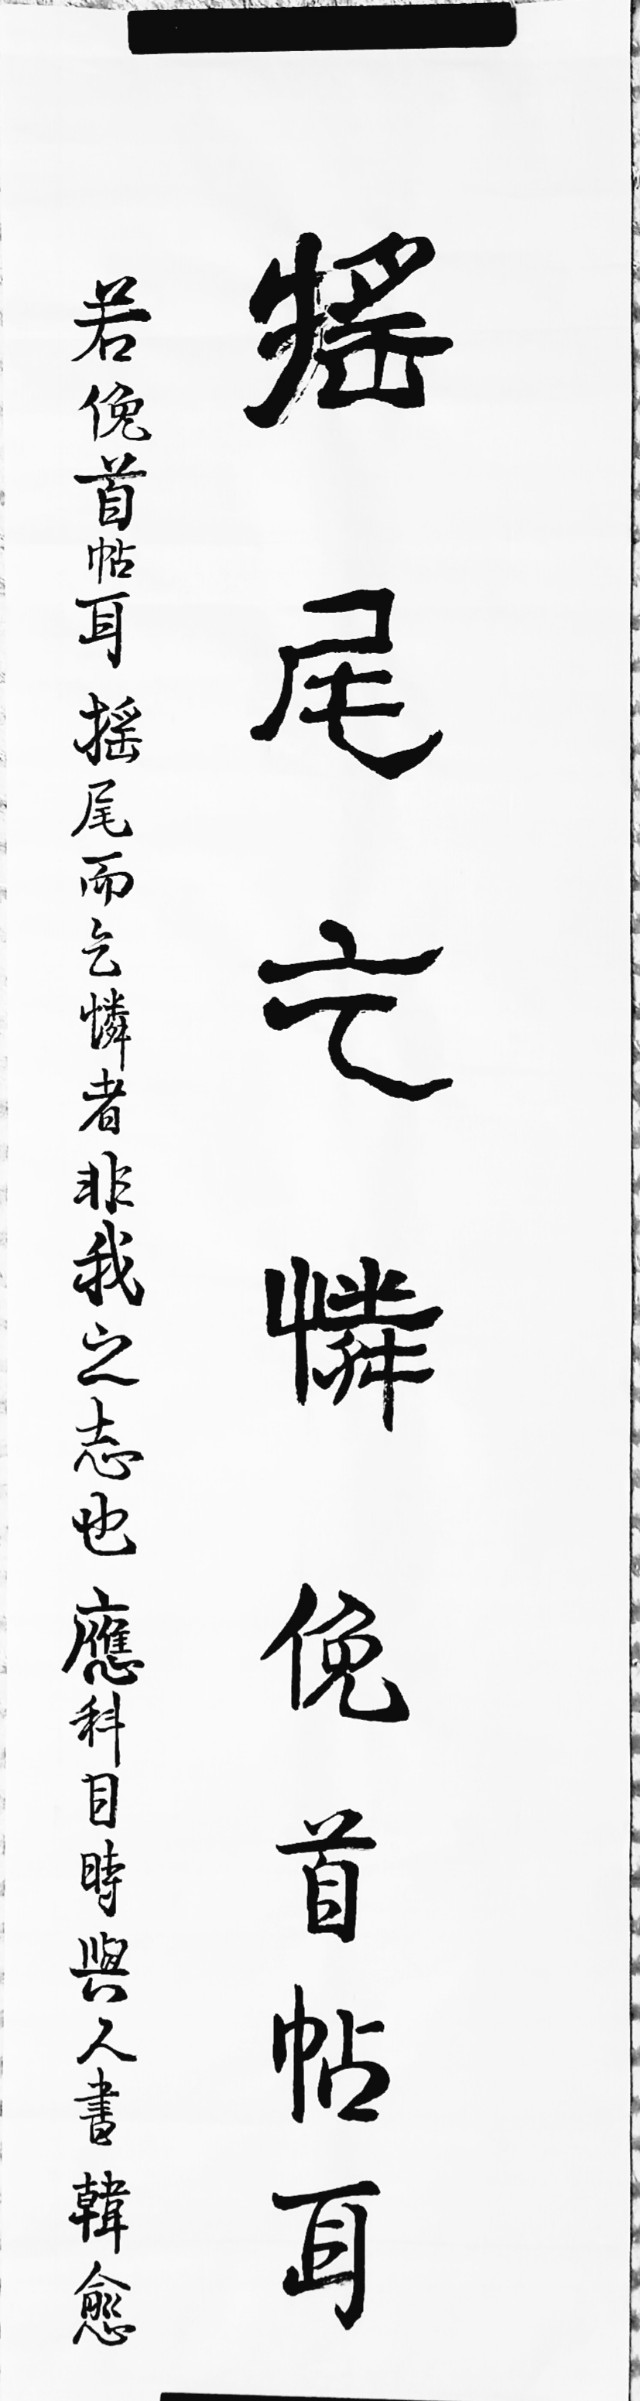 搖尾乞憐俛首帖耳
若俛首帖耳搖尾而乞憐者非我之志也應科目時與人書韓愈